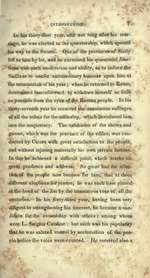 INTRODUCTION.
In his thirty-first year, and not long after his marriage, he was elected to the quæstorship, which opened his way to the Senate. One of the provinces of Sicily fell to him by lot, and he exercised his quæstorial functions with such moderation and ability, as to induce the Sicilians to confer extraordinary honours upon him at the termination of his year; when he returned to Rome, determined henceforward to withdraw himself as little as possible from the eyes of the Roman people. In his thirty-seventh year he received the unanimous suffrages of all the tribes for the ædileship, which introduced him into the magistracy. The exhibition of the shows and games, which was the province of the ædiles, was conducted by Cicero with great satisfaction to the people, and without injuring materially his own private fortune. In this he achieved a difficult point, which marks his great prudence and address. So great had the affection of the people now become for him, that at three different elections for prætor, he was each time placed at the head of the list by the unanimous vote of all the centuries. In his forty-third year, having been very diligent in strengthening his interest, he became a candidate for the consulship with others; among whom were L. Sergius Catiline: but such was his popularity that he was saluted consul by acclamation of the people before the votes were counted. He received also a